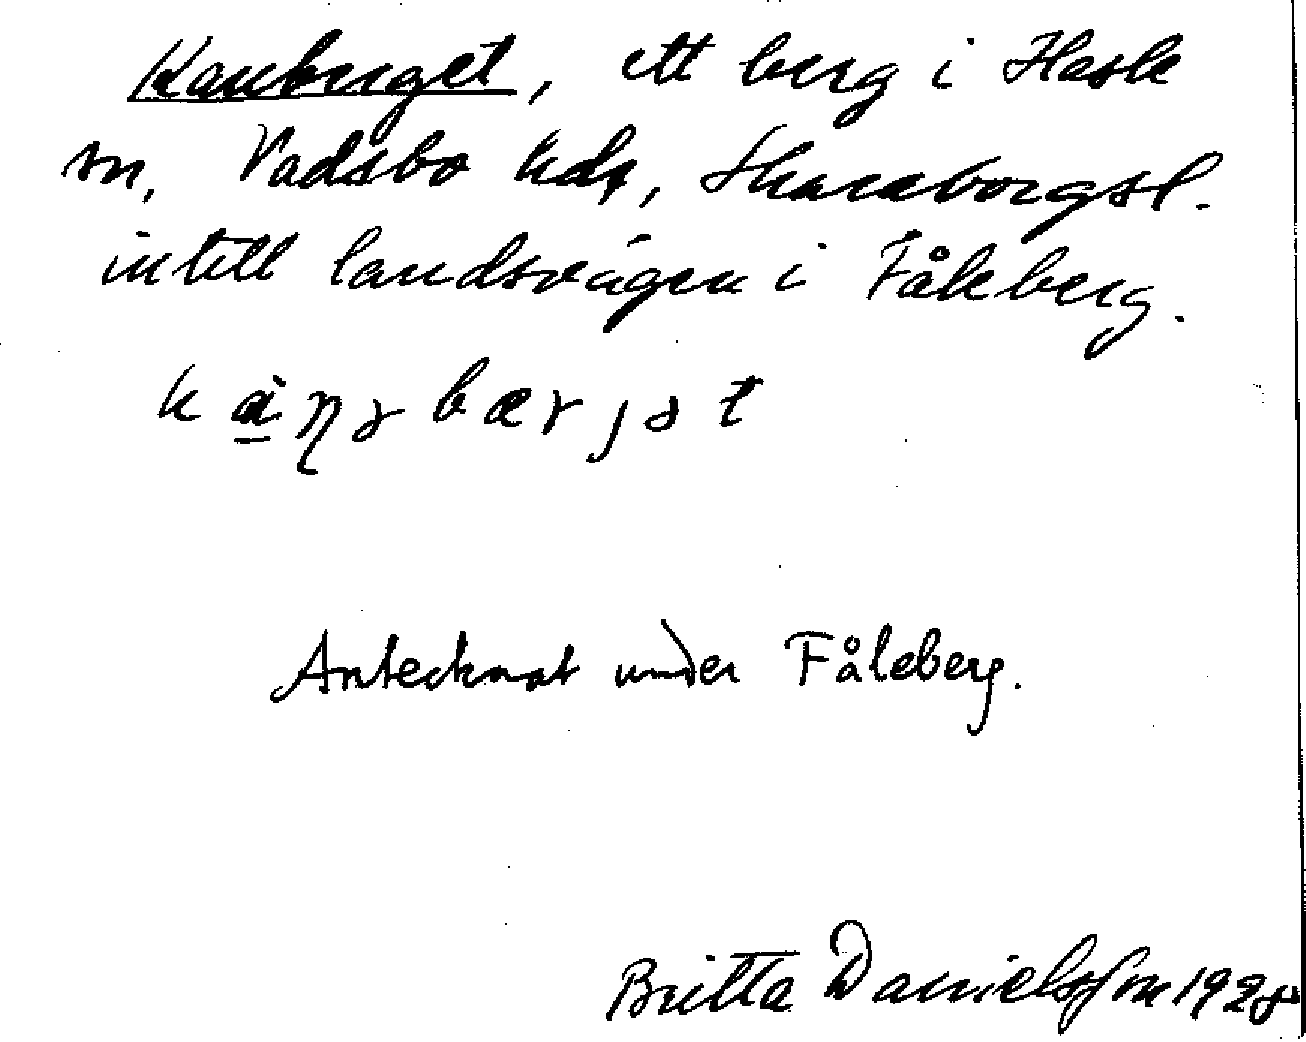 Kanberget, ett berg i Hasle
sn, Vadsbo hd, Skaraborgsl.
intill landsvägen i Fåleberg.
Antecknat under Fåleberg.
Britta Danielsson 1928